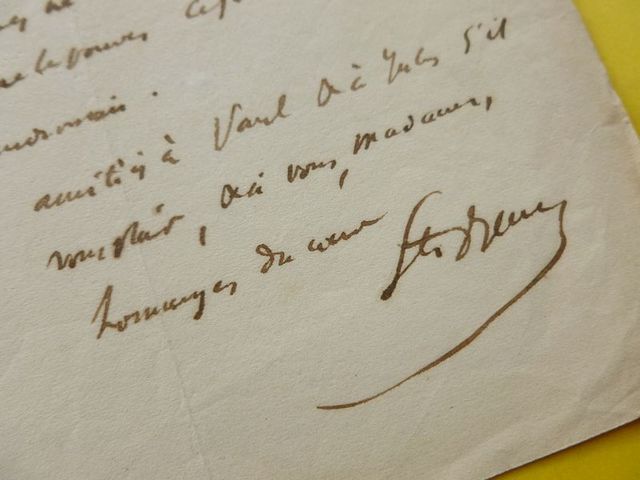 ne
ne le pouvez
amitiés à Paul et à Jules s'il
vous plait, et à vous, madame,
hommages du cœur